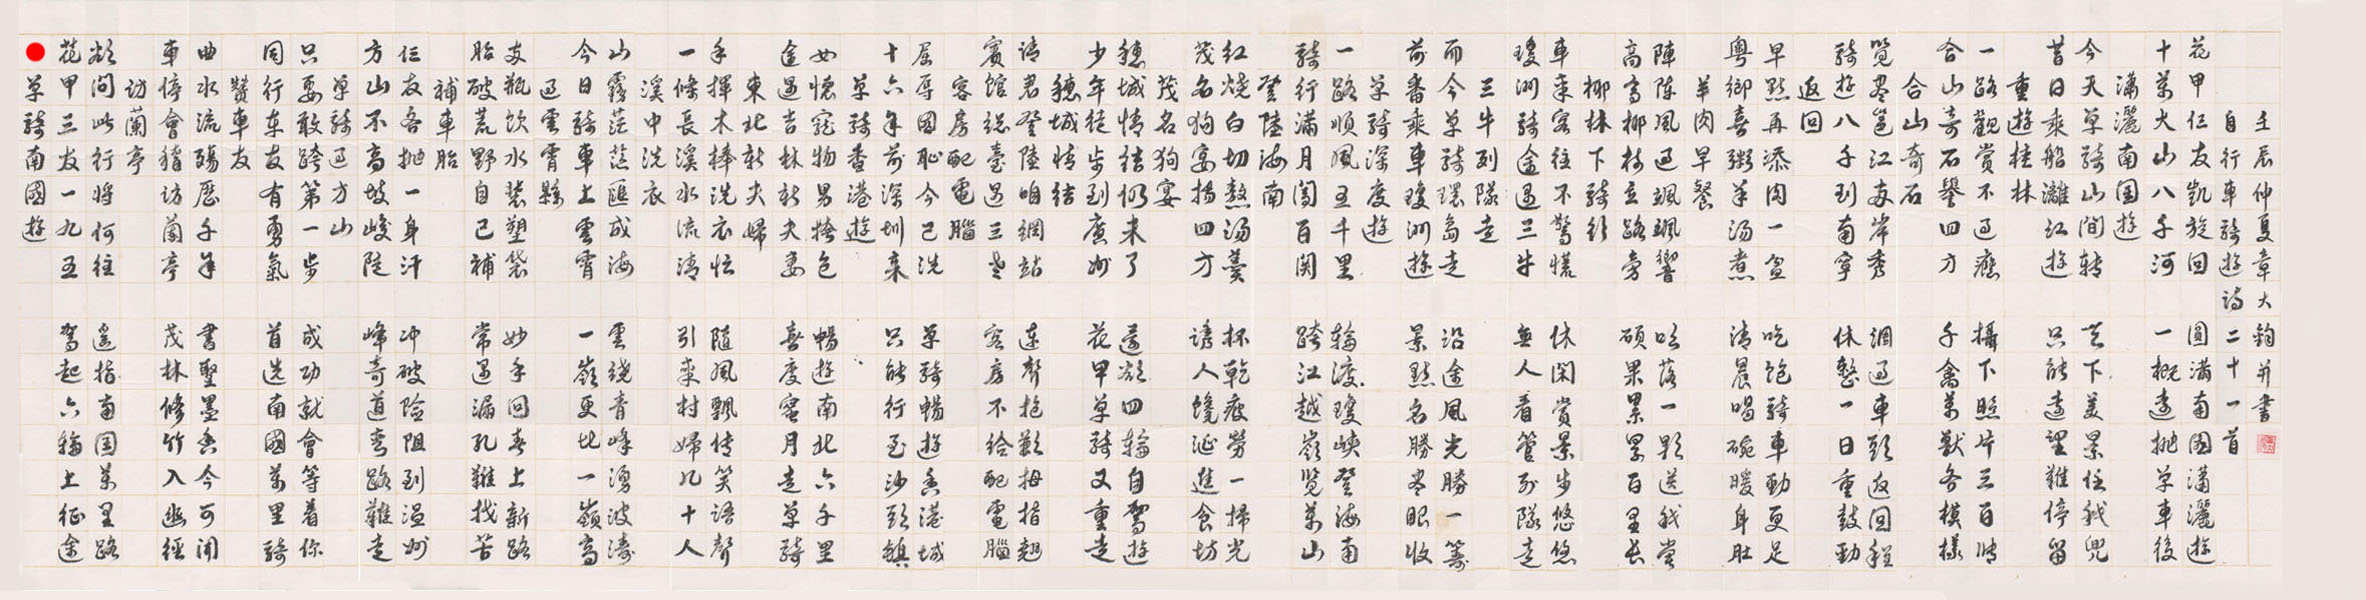 草騎南國遊
花甲三友一九五 駕起六輪上征途
欲問此行將何往 遙指南国萬里路
訪蘭亭
車停會稽訪蘭亭 茂林修竹入幽徑
曲水流殤歷千年 書聖墨香今可聞
贊車友
同行车友有勇氣 首选南國萬里騎
只要敢跨第一步 成功就會等着你
草騎过方山
方山不高坡峻陡 峰奇道弯路難走
仨友各抛一身汗 冲破险阻到温州
補車胎
胎破荒野自己補 常遇漏孔難找苦
支瓶饮水装塑袋 妙手回春上新路
过雲霄縣
今日騎車上雲霄 一嶺更比一嶺高
山霧茫茫匯成海 雲绕青峰湧波濤
溪中洗衣
一條長溪水流清 引來村婦九十人
手揮木棒洗衣忙 隨風飄传笑語聲
東北新夫婦
途遇吉林新夫妻 喜度蜜月走草騎
女懷宠物男揹包 暢遊南北六千里
草騎香港遊
十六年前深圳來 只能行至沙頭鎮
屈辱國耻今已洗 草騎暢遊香港城
客房配電腦
賓馆總臺遇三老 客房不给配電腦
请君登陸咱網站 連聲抱歉拇指翹
穗城情结
少年徒步到廣州 花甲草騎又重走
穗城情结仍未了 還欲四輪自駕遊
茂名狗宴
茂名狗宴揚四方 誘人馋涎進食坊
紅燒白切熬湯羹 杯乾疲劳一掃光
登陸海南
騎行滿月闖百関 跨江越嶺覽萬山
一路順風五千里 輪渡瓊峡登海南
草騎深度遊
前番乘車瓊洲遊 景點名勝尽眼收
而今草騎環島走 沿途風光勝一籌
三牛列隊走
瓊洲騎途遇三牛 無人看管列隊走
車来客往不驚慌 休闲賞景步悠悠
椰林下騎行
高高椰树立路旁 碩果累累百里長
陣陣風过飒飒響 吹落一颗送我尝
羊肉早餐
粤鄉喜粥羊湯煮 清晨喝碗暖身肚
早點再添肉一盆 吃饱騎車勁更足
返回
騎遊八千到南寧 休整一日重鼓勁
覽尽邕江两岸秀 調过車頭返回程
合山奇石
合山奇石譽四方 千禽萬獸各模樣
一路觀赏不过瘾 攝下照片三百张
重遊桂林
昔日乘船灕江遊 只能遠望難停留
今天草騎山間轉 天下美景任我兜
瀟灑南国遊
十萬大山八千河 一概遠抛草車後
花甲仨友凱旋回 圓滿南国瀟灑遊
自行車騎遊詩二十一首
壬辰仲夏章大鈞并書